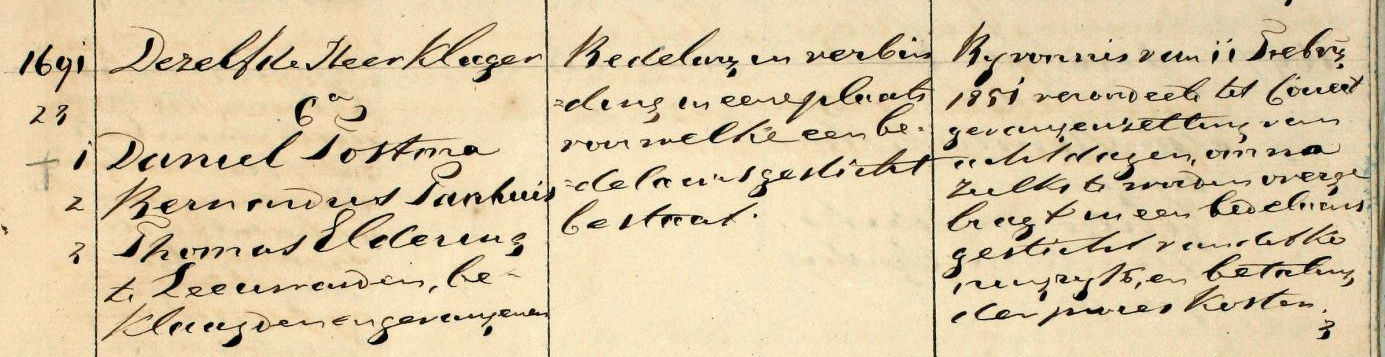 1691 Dezelfde Heer Klager
23 Ca
1 Daniel Postma
2 Bernardus Panhuis
3 Thomas Elderinz
te Leeuwarden, be-
klaagden en gevangenen
Bedelarij in verbin
=ding in eene plaats
voor welke een be-
=delaarsgesticht
bestaat.
Bij vonnis van 11 Febrij
1851 veroordeeld tot Correct
gevangenzetting van
acht dagen, om na
zulks te worden overge
bragt in een bedelaars
gesticht van dit Ko
ningrijk, en betaling
der proces kosten.
3